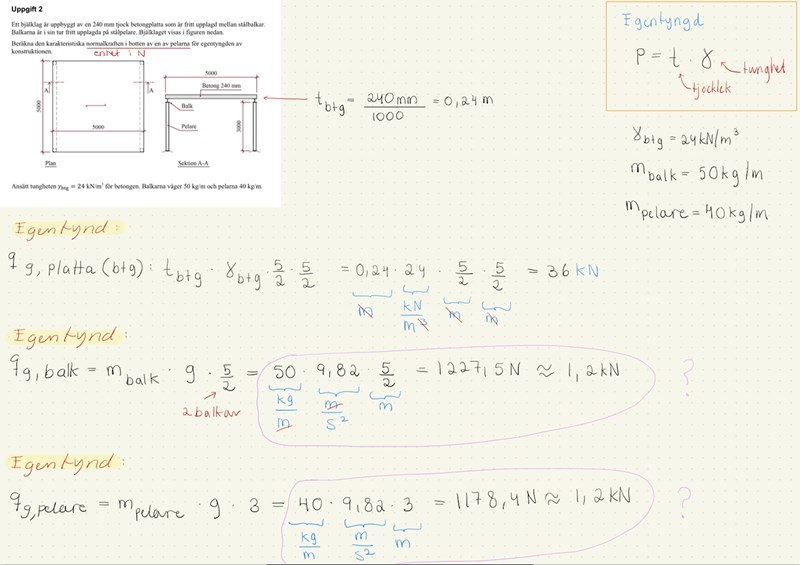 Uppgift 2
Ett bjälklag är uppbyggt av en 240 mm tjock betongplatta som är fritt upplagd mellan stålbalkar.
Balkarna är i sin tur fritt upplagda på stålpelare. Bjälklaget visas i figuren nedan.
Beräkna den karakteristiska normalkraften i botten av en av pelarna för egentyngden av
konstruktionen.
enhet i N
A
A
5000
5000
Plan
5000
Betong 240 mm
Balk
Pelare
3000
Sektion A-A
Ansätt tungheten γbtg = 24 kN/m³ för betongen. Balkarna väger 50 kg/m och pelarna 40 kg/m.
t btg = 240 mm / 1000 = 0,24 m
Egentyngd
P = t · γ
tunghet
tjocklek
γbtg = 24 kN/m³
m balk = 50 kg/m
m pelare = 40 kg/m
Egentynd:
q g, platta (btg): t btg · γ btg · 5/2 · 5/2 = 0,24 · 24 · 5/2 · 5/2 = 36 kN
m kN/m³ m m
Egentynd:
q g, balk = m balk · g · 5/2 = 50 · 9,82 · 5/2 = 1227,5 N ≈ 1,2 kN ?
2 balkar
kg/m m/s² m
Egentynd:
q g, pelare = m pelare · g · 3 = 40 · 9,82 · 3 = 1178,4 N ≈ 1,2 kN ?
kg/m m/s² m